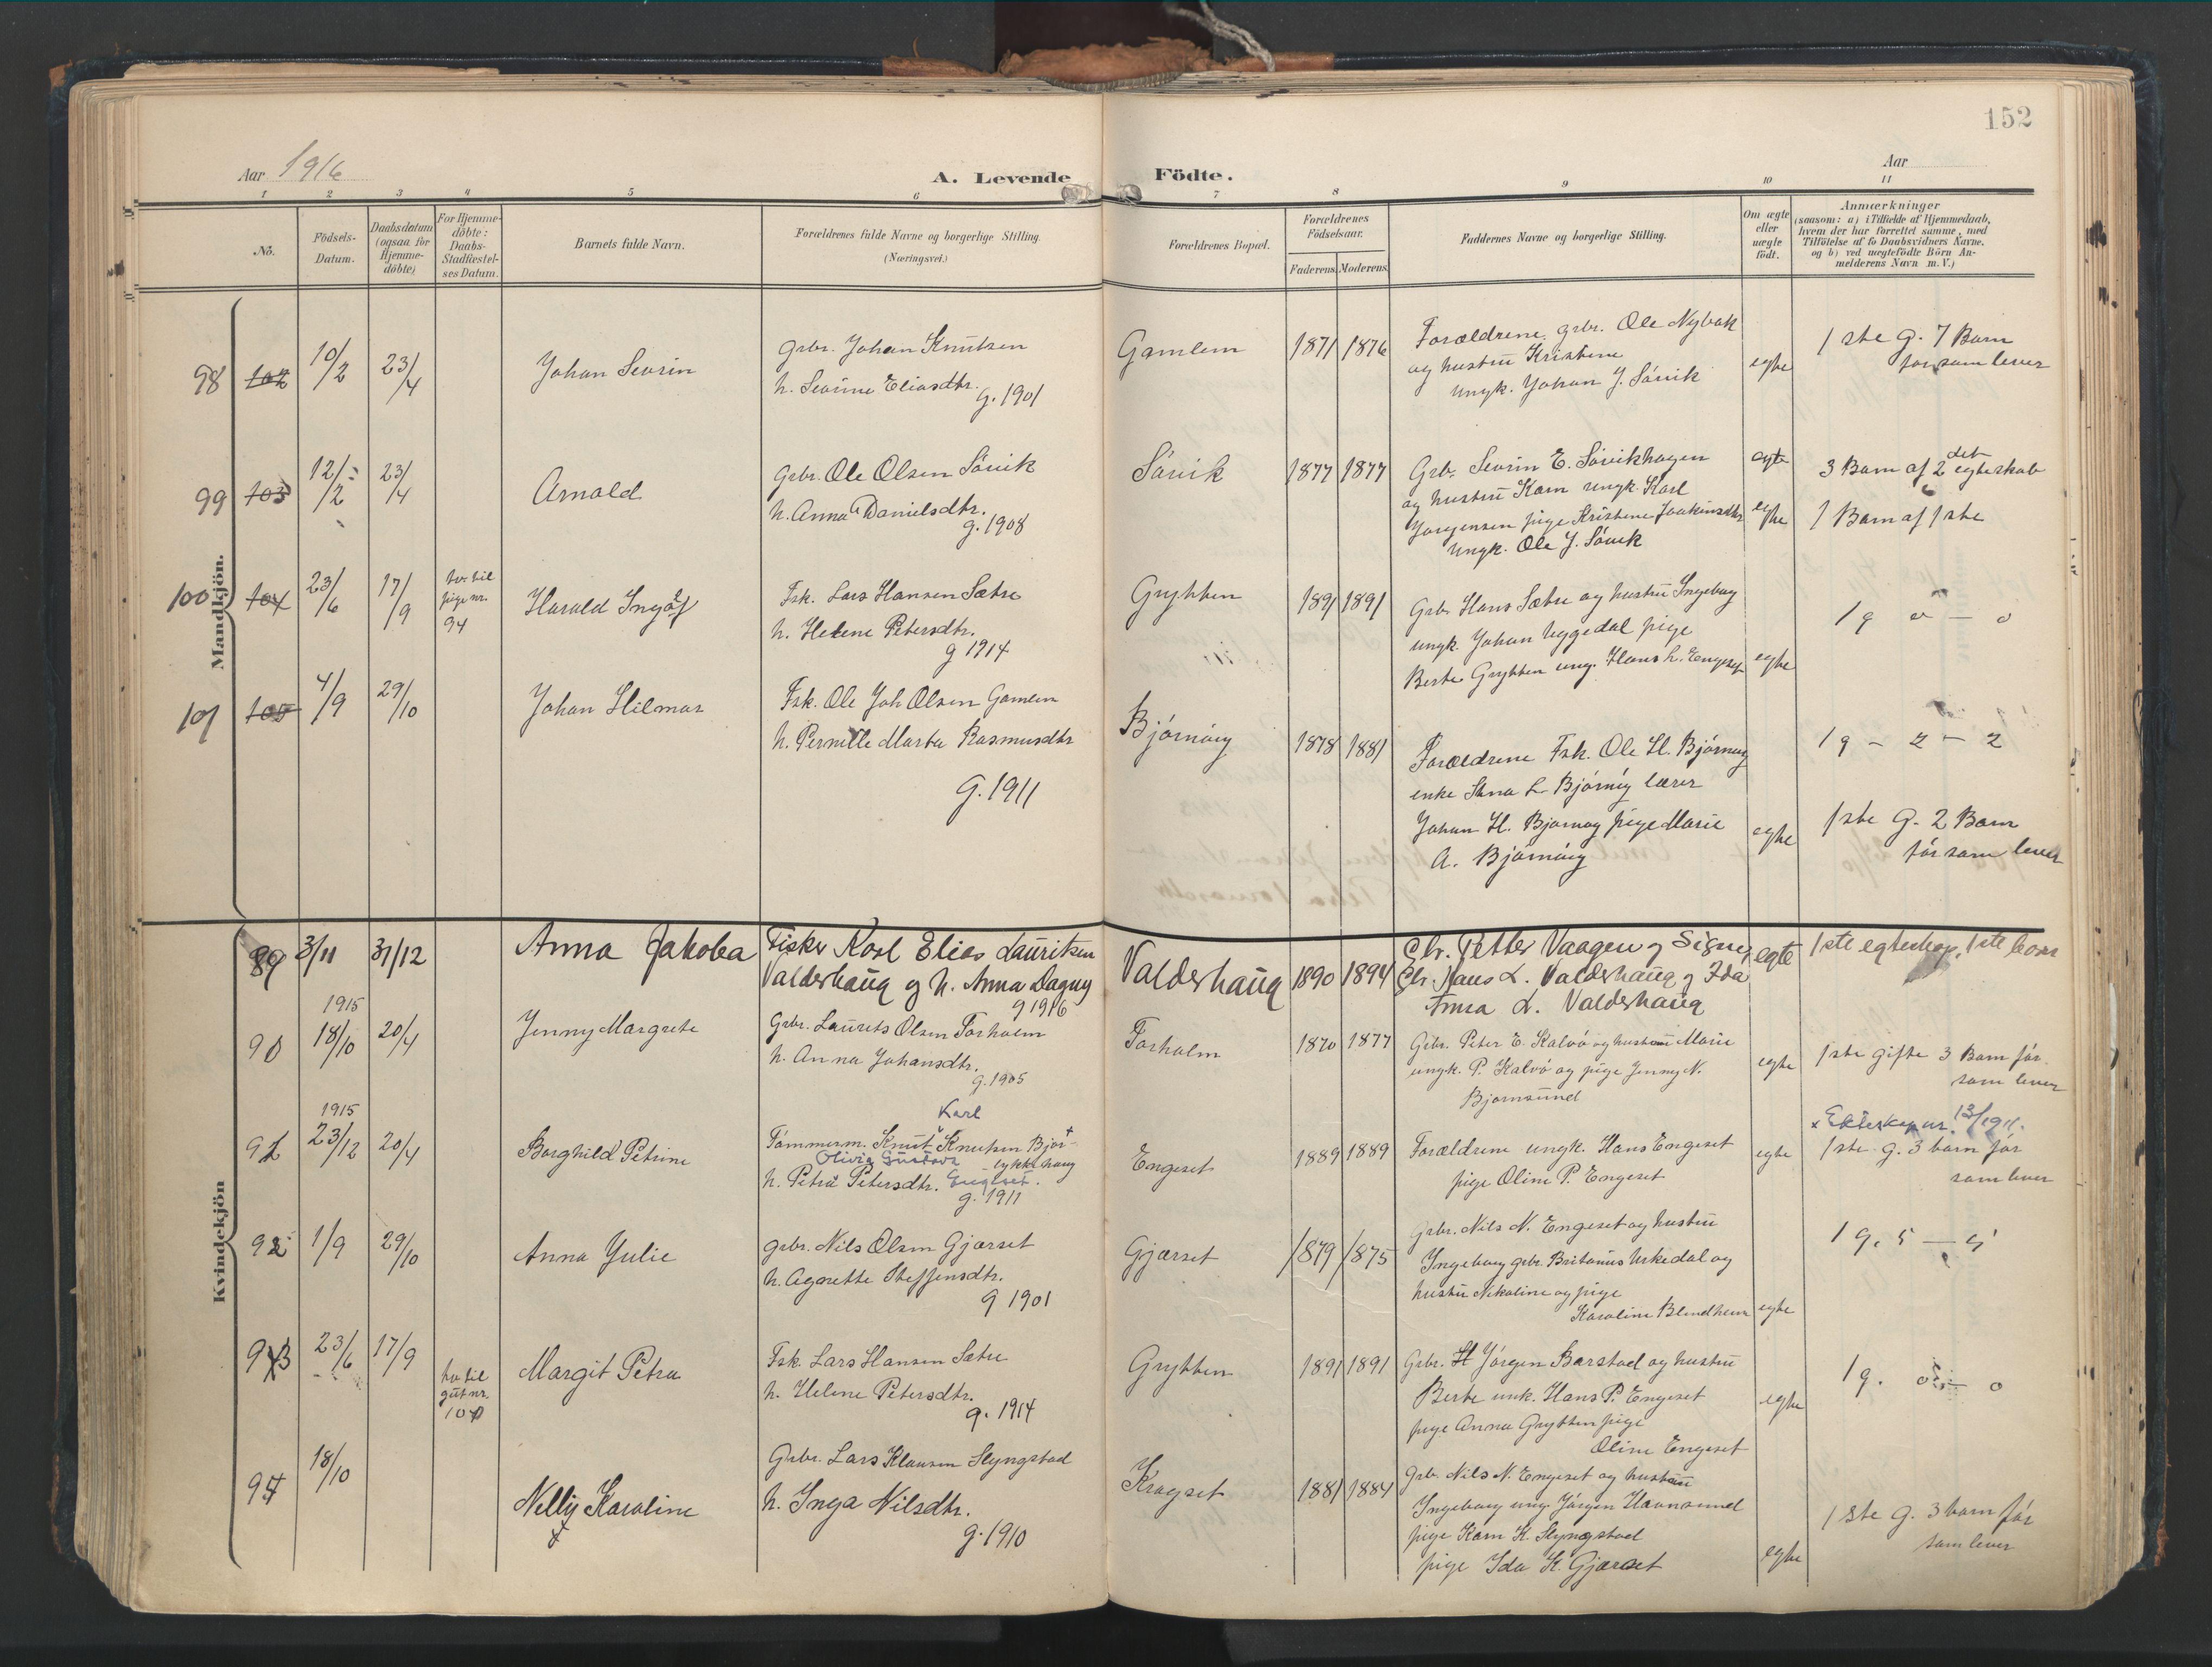 152
Aar 1916
A. Levende
Födte.
Aar
1 2 3 4 5 6 7 8 9 10 11
No.
Födsels-
Datum.
Daabsdatum
(ogsaa for
Hjemme-
döbte)
For Hjemme-
döbte:
Daabs-
Stadfæstel-
ses Datum.
Barnets fulde Navn.
Forældrenes fulde Navne og borgerlige Stilling.
(Næringsvei.)
Forældrenes Bopæl.
Forældrenes
Födselsaar.
Faderens. Moderens.
Faddernes Navne og borgerlige Stilling.
Om ægte
eller
uægte
födt.
Anmærkninger
(saasom: a) i Tilfælde af Hjemmedaab,
hvem der har forrettet samme, med
Tilföielse af to Daabsvidners Navne,
og b) ved uægtefödte Börn An-
melderens Navn m. V.)
Mandkjön.
98 102 10/2 23/4
Johan Sevrin
Grbr. Johan Knutsen
h. Sevrine Eliasdtr.
g. 1901
Gamlem
1871 1876
Forældrene, grbr. Ole Nybak
og hustru Kristine
ungk. Johan J. Sórvik
egte
1ste g. 7 Barn
før som lever
99 103 12/2 23/4
Arnold
Grbr. Ole Olsen Sórvik
h. Anna Danielsdtr.
g. 1908
Sórvik
1877 1877
Grb. Sevrin E. Sórvikhagen
og hustru Karn ungk. Karl
Jørgensen pige Kristine Joakimsdtr
ungk. Ole J. Sórvik
egte
egte
3 Barn af 2 det egteskab
1 Barn af 1ste
100 104 23/6 17/9
tv. til
pige nr.
94
Harald Ingolf
Fsk. Lars Hansen Sætre
h. Helene Petersdtr.
g 1914
Grytten
1891 1891
Grb. Hans Sætre og hustru Ingeborg
ungk. Johan Uggedal pige
Berte Grytten ung. Hans L. Engeset
egte
1 g o — o
101 105 4/9 29/10
Johan Hilmar
Fsk. Ole Joh Olsen Gamlem
h. Pernille Marta Rasmusdtr
g. 1911
Bjórnóy
1878 1881
Forældrene Fsk. Ole H. Bjórnóy
enke L. Bjórnóy lærer
Johan H. Bjórnóy pige Marie
A. Bjórnóy
egte
1 g – 2 – 2
1ste g. 2 Barn
fór som lever
Kvindekjön
89 3/11 31/12
Anna Jakoba
Fisker Karl Elias Lauritsen
Valderhaug og h. Anna Dagny
g 1916
Valderhaug
1890 1894
Elr. Petter Vaagen og Signe,
Elr. Hans L. Valderhaug og Ida
Anna L. Valderhaug
egte
1ste egteskap, 1ste barn
90 1915 18/10 20/4
Jenny Margrete
Grbr. Laurits Olsen Torholm
h. Anna Johansdtr.
g. 1905
Torholm
1870 1877
Grbr. Peter E. Kalvó og hustru Marie
ungk. P. Kalvó og pige Jenny N.
Bjornsund
egte
1ste gifte 3 Barn fór
som lever
91 1915 23/12 20/4
Borghild Petrine
Karl
Tómmerm. Knut Knutsen Bjor-
Olivia Gustava
lykkhaug
h. Petra Petersdtr. Engeset.
g. 1911
Engeset
1889 1889
Forældrene ungk. Hans Engeset
pige Oline P. Engeset
egte
x Ekteskap nr. 13/1911.
1ste g. 3 barn fór
som lever
92 1/9 29/10
Anna Julie
grbr. Nils Olsen Gjærset
h. Agnette Steffensdtr.
g 1901
Gjærset
1879 1875
Grbr. Nils N. Engeset og hustru
Ingeborg grbr. Britanus Urkedal og
hustru Nikoline og pige
Karoline Blindheim
egte
1 g. 5 — 5
93 23/6 17/9
tv. til
gut nr.
100
Margit Petra
Fsk. Lars Hansen Sætre
h. Helene Petersdtr.
g. 1914
Grytten
1891 1891
Grbr. H Jórgen Barstad og hustru
Berte unk. Hans P. Engeset
pige Anna Grytten pige
Oline Engeset
egte
1 g. o — o
94 18/10
Nelly Karoline
Grbr. Lars Klausen Slyngstad
h. Inga Nilsdtr.
g. 1910
Kragset
1881 1884
Grb. Nils N. Engeset og hustru
Ingeborg ung. Jórgen Havnsund
pige Karn K. Slyngstad
pige Ida K. Gjærset
egte
1ste g. 3 barn fór
som lever